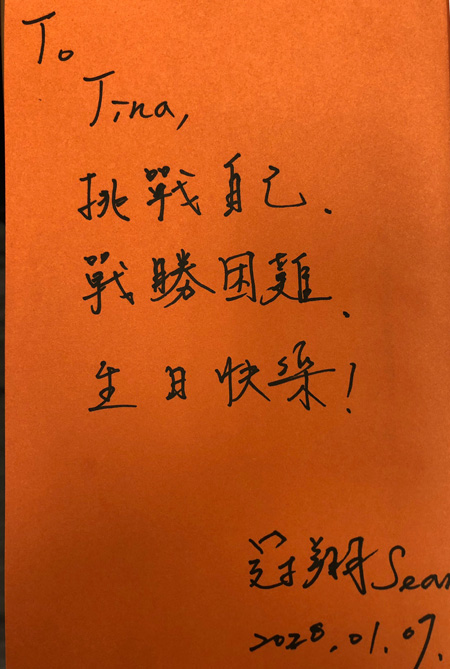 To
Tina,
挑戰自己、
戰勝困難、
生日快樂!
冠翔 Sean
2028.01.07.